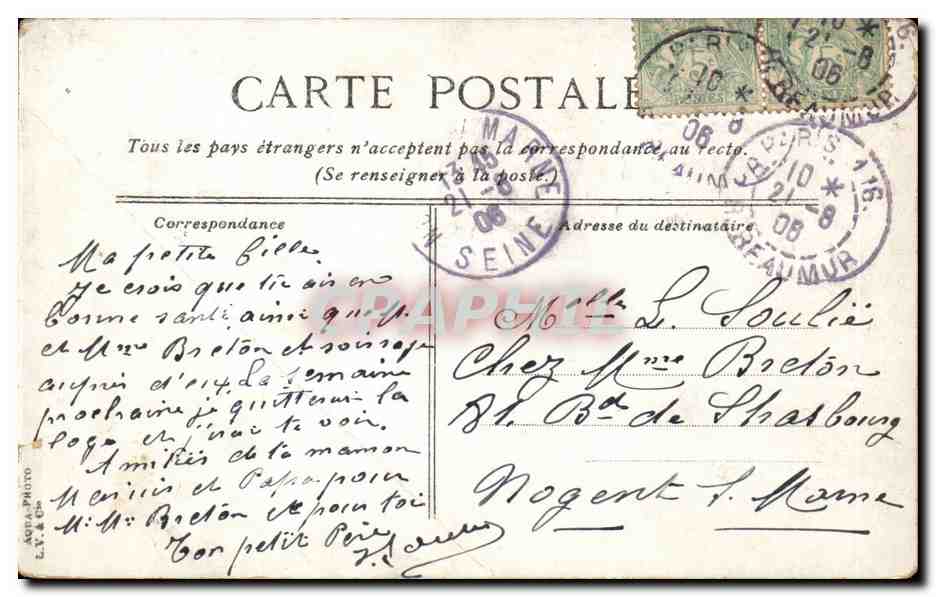 CARTE POSTALE
Tous les pays étrangers n'acceptent pas la correspondance au recto.
(Se renseigner à la poste.)
Correspondance
Adresse du destinataire
Ma petite fille
Je crois que tu ais en
bonne santé ainsi que M.
et Mme Breton et sois sage
auprès d'eux La semaine
prochaine je quitterai la
loge et j'irai te voir.
Amitiés de ta maman
Marius et Papa pour
M. Me Breton et pour toi
Ton petit Père
Melle L. Soulié
Chez Mme Breton
81. Bd de Strasbourg
Nogent s. Marne
MARNE
13 45
21 - 8
06
SEINE
PARIS 116.
10 *
21 - 8
06
R. REAUMUR
PARIS
10 *
8
06
10 *
21 - 8
06
R. REAUMUR
CPAPHIL
AQUA-PHOTO
L.V. & Cie